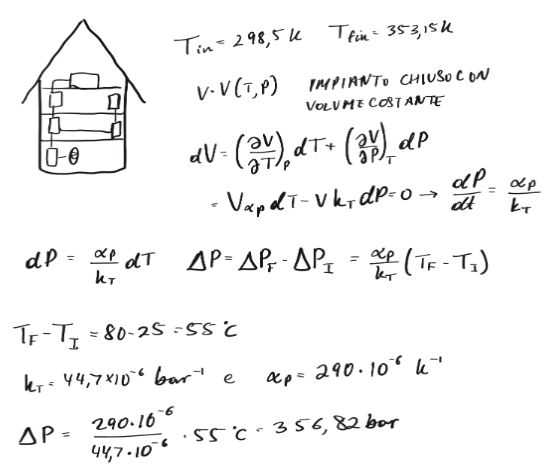 T_in = 298,5 k   T_fin = 353,15k
V = V(T,P)   IMPIANTO CHIUSO CON
VOLUME COSTANTE
dV = (∂V/∂T)_P dT + (∂V/∂P)_T dP
= Vα_P dT - V k_T dP = 0 → dP/dt = α_P/k_T
dP = α_P/k_T dT   ΔP = ΔP_F - ΔP_I = α_P/k_T (T_F - T_I)
T_F - T_I = 80 - 25 = 55 °C
k_T = 44,7×10^-6 bar^-1 e α_P = 290·10^-6 k^-1
ΔP = 290·10^-6 / 44,7·10^-6 · 55 °C = 356,82 bar